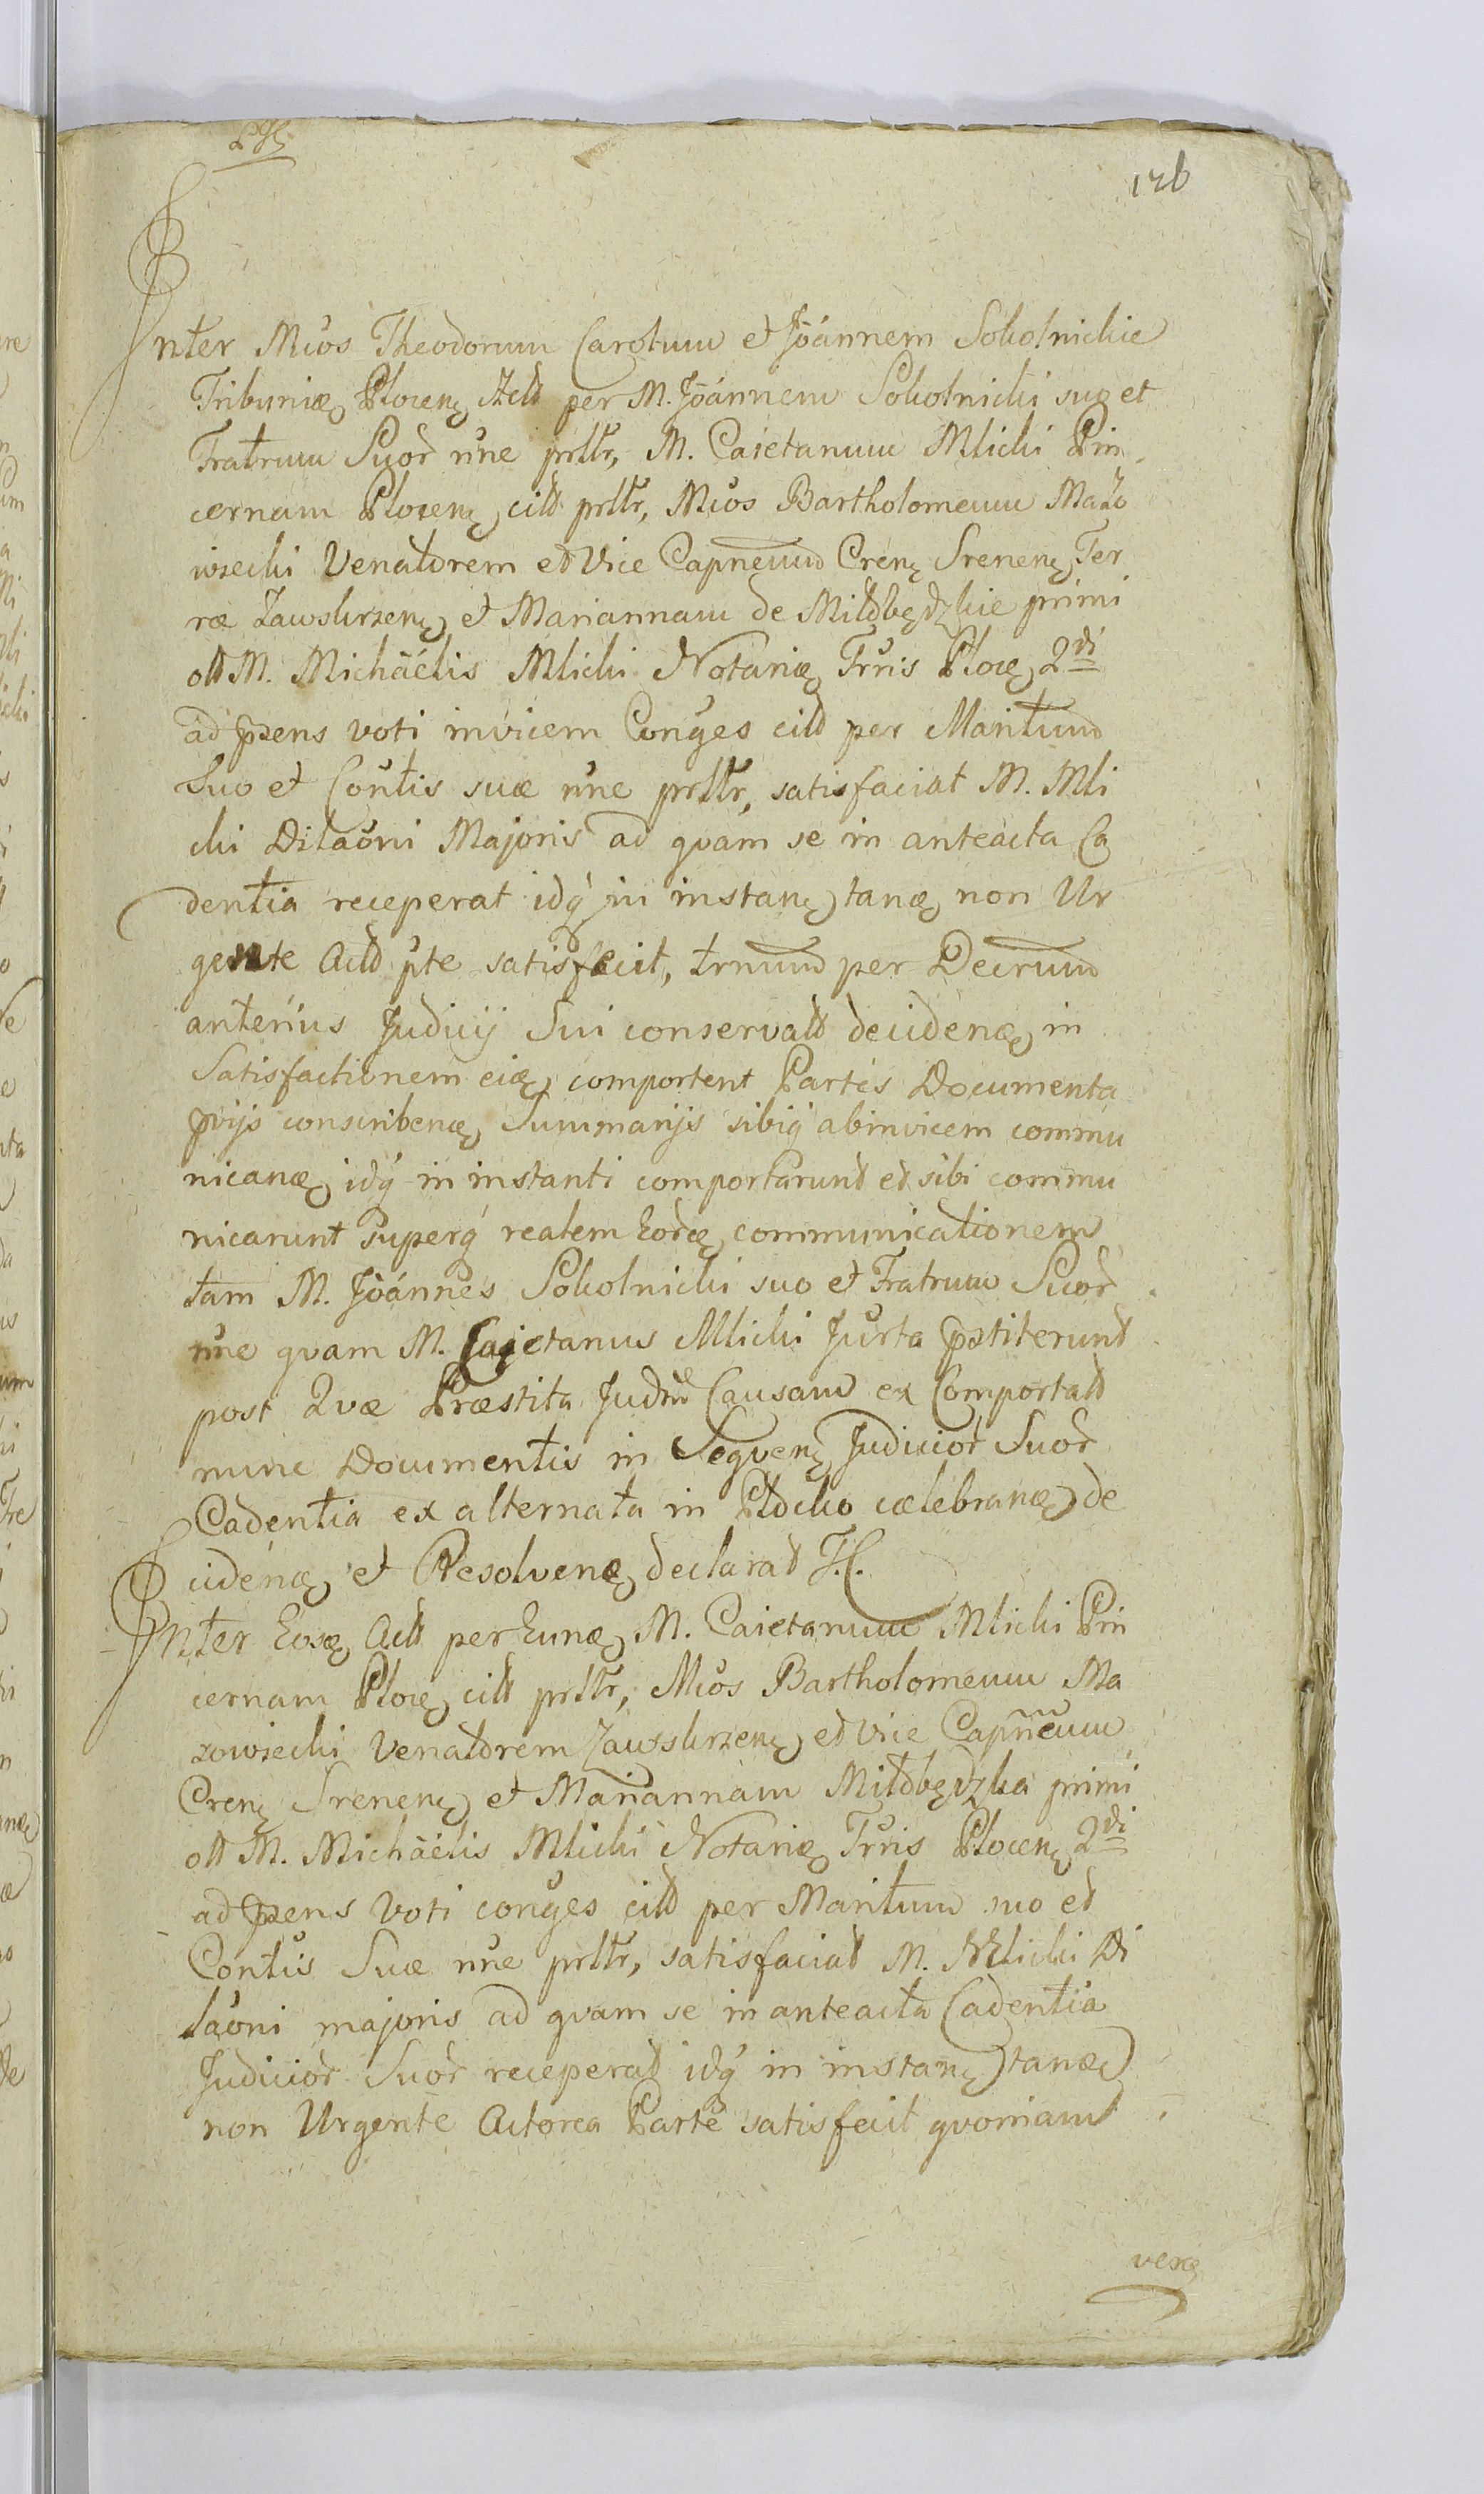 126
Inter Mcos Theodorum Carolum et Joánnem Sokolnickie
Tribunię Plocenę Actt per M. Joánnem Sokolnicki suo et
Fratrum Suor nne prlłr, M. Caietanum Mlicki Pin
cernam Plocenę citt prlłr, Mcos Bartholomeum Mazo
wiecki Venatorem et Vice Capneum Crenę Srenenę Ter
ræ Zawskrzenę et Mariannam de Miłobędzkie primi
ott M. Michäelis Mlicki Notarię Trris Plocę 2di
ad pzens voti invicem Conges citt per Maritum
Suo et Contis suæ nne prlłr, satisfaciat M. Mli
cki Dilaoni Majoris ad qvam se in anteacta Ca
dentia receperat idq in instanę tanę non Ur
gente Actt pte satisfecit, trnum per Decrum
anterius Judicij Sui conservatt decidenę in
Satisfactionem eię comportent Partes Documenta
pvijs conscribenę Summarijs sibiq abinvicem commu
nicanę idq in instanti comportarunt et sibi commu
nicarunt superq realem Eordę communicationem
tam M. Joánnes Sokolnicki suo et Fratrum Suor
nne qvam M. Caietanus Mlicki Jurta pstiterunt
post Qvæ Præstita Judm Causam ex Comportatt
nunc Documentis in Seqvenę Judicior Suor
Cadentia ex alternata in Płocko cælebranę de
cidenę et Resolvenę declarat J.C.
Inter Eosę Actt per Eunę M. Caietanum Mlicki Pin
cernam Plocę citt prlłr, Mcos Bartholomeum Ma
zowiecki Venatorem Zawskrzenę et Vice Capneum
Crenę Srenenę et Mariannam Miłobędzka primi
ott M. Michäelis Mlicki Notarię Trris Plocenę 2di
ad pzens Voti conges citt per Maritum suo et
Contis Suæ nne prlłr, satisfaciat M. Mlicki Di
laoni majoris ad qvam se in anteacta Cadentia
Judicior Suor receperat idq in instanę tanę
non Urgente Actorea Parte satisfecit qvoniam